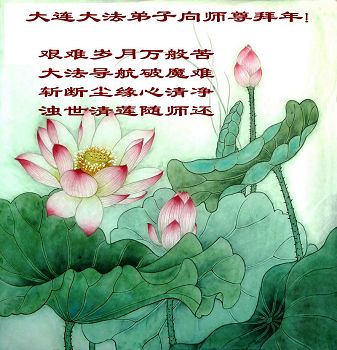 大连大法弟子向师尊拜年!
艰难岁月万般苦
大法导航破魔难
斩断尘缘心清净
浊世清莲随师还